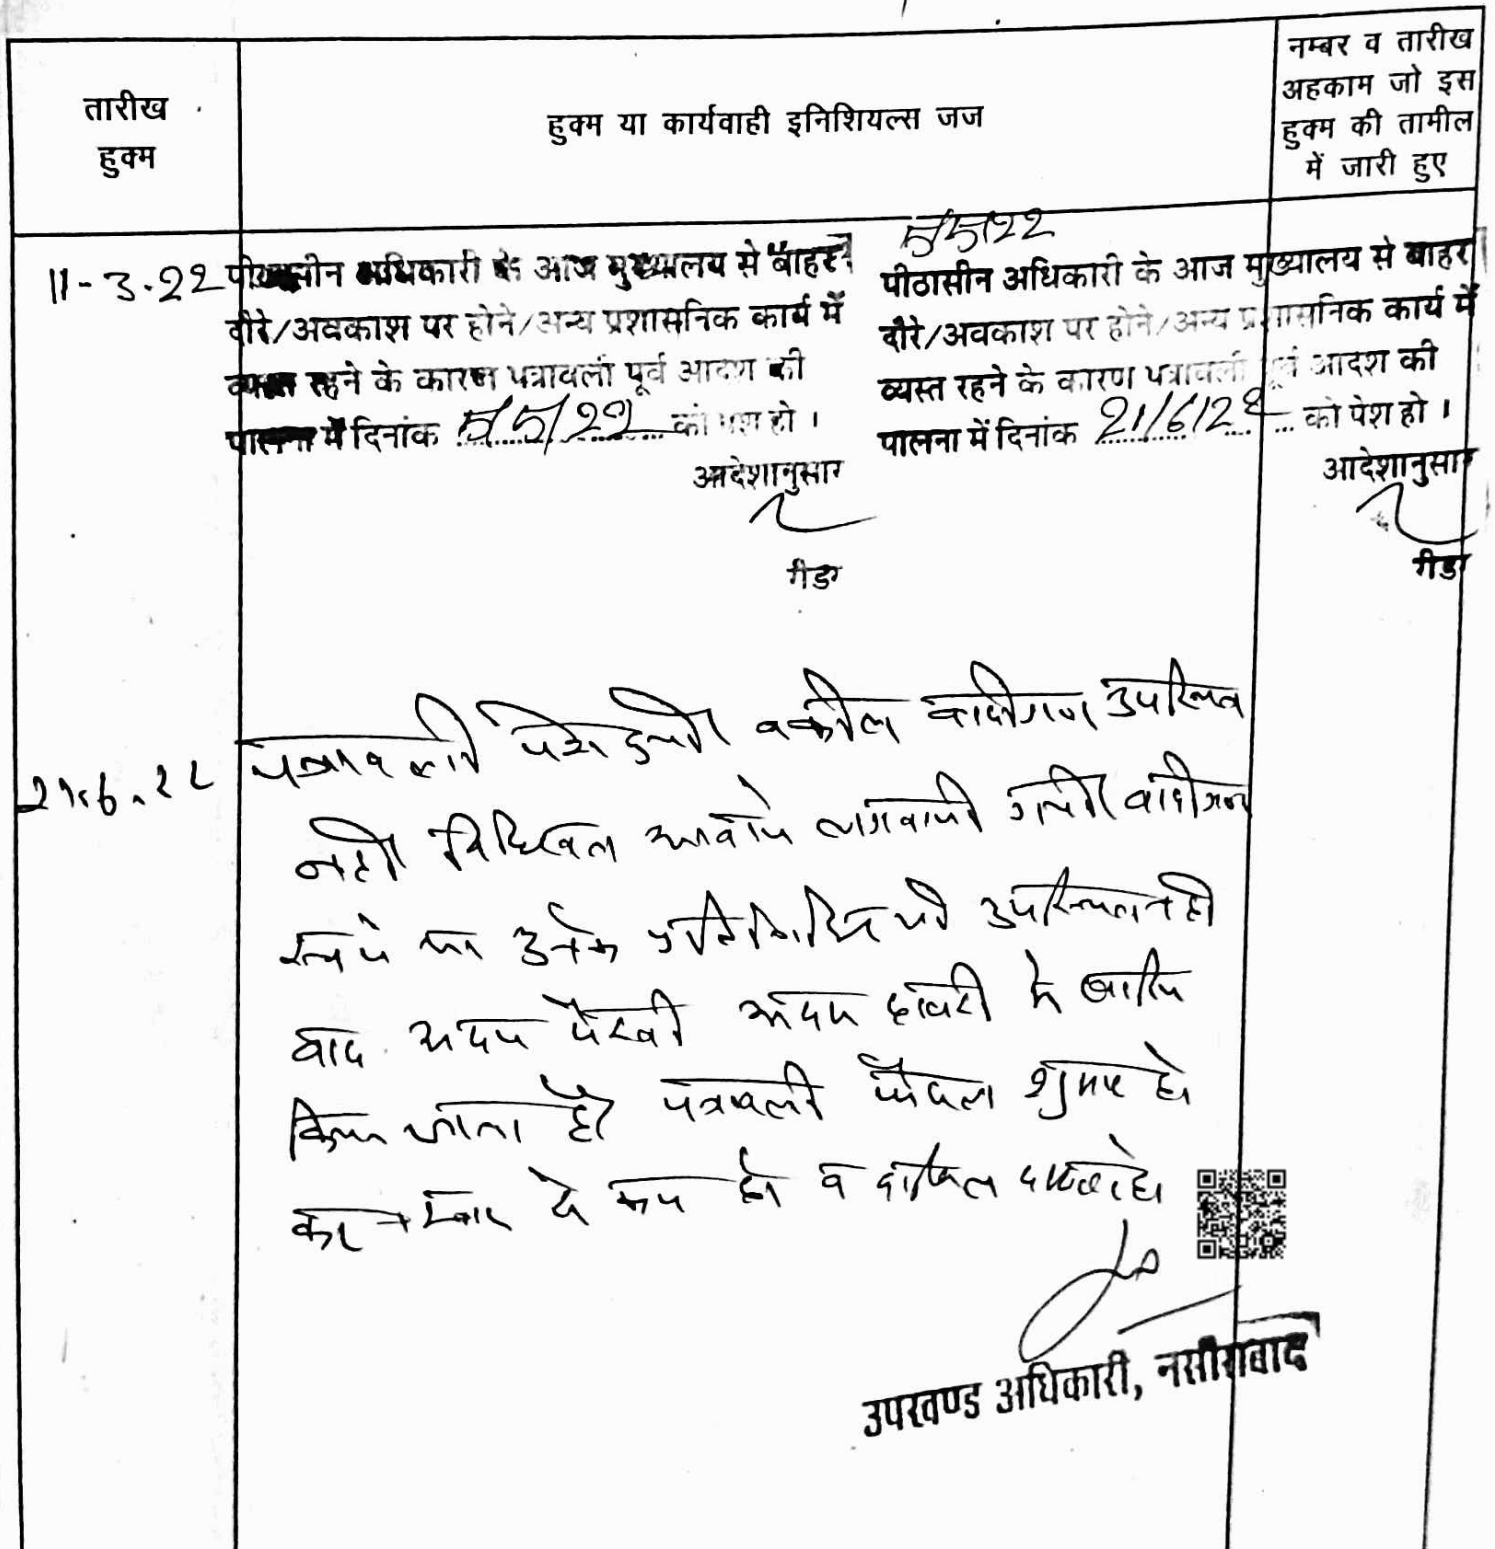 तारीख
हुक्म
हुक्म या कार्यवाही इनिशियल्स जज
नम्बर व तारीख
अहकाम जो इस
हुक्म की तामील
में जारी हुए
11-3-22
पीठासीन अधिकारी के आज मुख्यालय से बाहर
दौरे/अवकाश पर होने/अन्य प्रशासनिक कार्य में
व्यस्त रहने के कारण पत्रावली पूर्व आदश की
पालना में दिनांक 5/5/22 को पेश हो ।
आदेशानुसार
रीडर
5/5/22
पीठासीन अधिकारी के आज मुख्यालय से बाहर
दौरे/अवकाश पर होने/अन्य प्रशासनिक कार्य में
व्यस्त रहने के कारण पत्रावली पूर्व आदश की
पालना में दिनांक 21/6/22 को पेश हो ।
आदेशानुसार
रीडर
21.6.22
पत्रावली पेश हुयी वकील वादीगण उपस्थित
नही विधिवत आवाजे लगवायी गयी वादीगण
स्वयं या उनके प्रतिनिधि भी उपस्थित नही
वाद अदम पैरवी अदम हाजरी मे खारिज
किया जाता है पत्रावली फैसल शुमार हो
कर नम्बर से कम हो व दाखिल दफ्तर हो
उपखण्ड अधिकारी, नसीराबाद